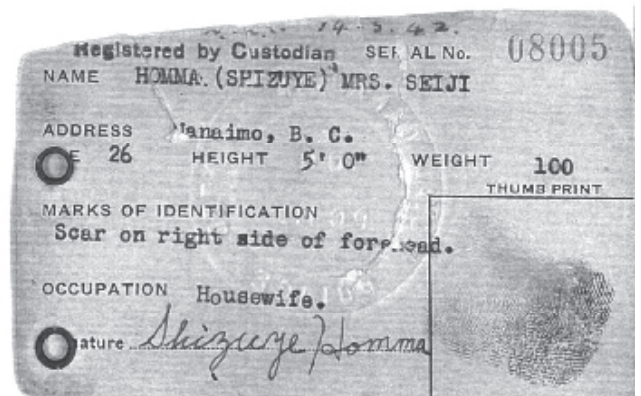 14-3.42.
Registered by Custodian SERIAL No. 08005
NAME HOMMA (SHIZUYE) MRS. SEIJI
ADDRESS Nanaimo, B. C.
E 26 HEIGHT 5' 0" WEIGHT 100
THUMB PRINT
MARKS OF IDENTIFICATION
Scar on right side of forehead.
OCCUPATION Housewife.
ature Shizuye Homma